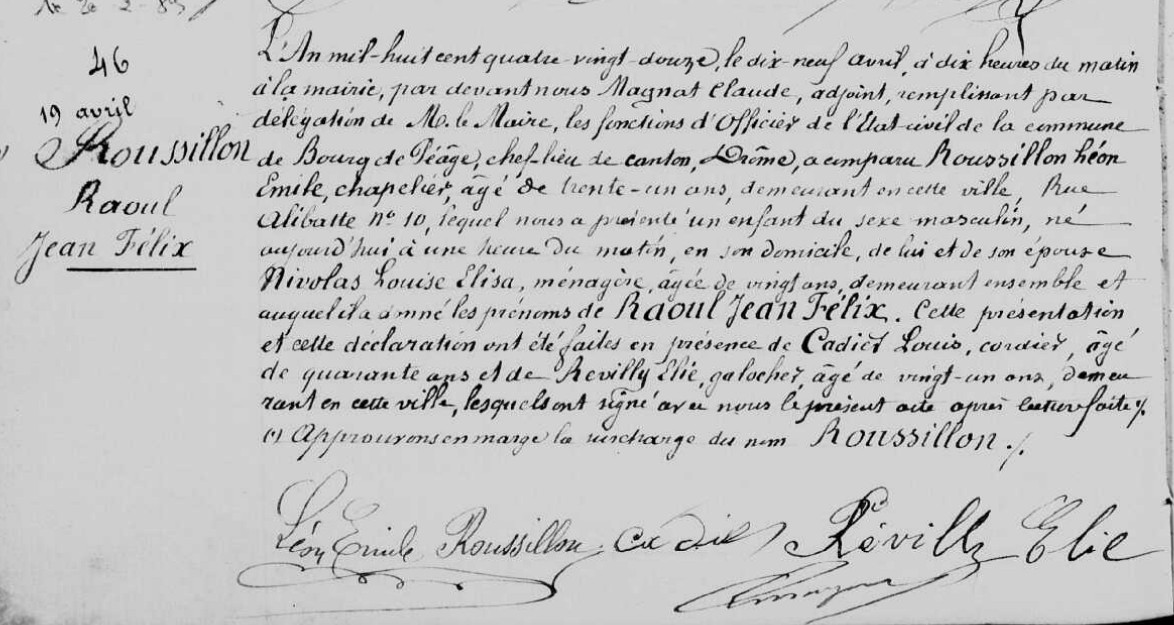 46
19 avril
Roussillon
Raoul
Jean Félix
L'An mil-huit cent quatre-vingt-douze, le dix-neuf avril, à dix heures du matin
à la mairie, par devant nous Magnat Claude, adjoint, remplissant par
délégation de M. le Maire, les fonctions d'Officier de l'Etat-civil de la commune
de Bourg de Péage, chef-lieu de canton, Drôme, a comparu Roussillon Léon
Emile, chapelier, âgé de trente-un ans, demeurant en cette ville, Rue
Alibatte n° 10, lequel nous a présenté un enfant du sexe masculin, né
aujourd'hui à une heure du matin, en son domicile, de lui et de son épouse
Nivolas Louise Elisa, ménagère, âgée de vingt ans, demeurant ensemble et
auquel il a donné les prénoms de Raoul Jean Félix. Cette présentation
et cette déclaration ont été faites en présence de Cadier Louis, cordier, âgé
de quarante ans et de Revilly Elie, galocher, âgé de vingt-un ans, demeu
rant en cette ville, lesquels ont signé avec nous le présent acte après lecture faite ./.
(1) Approuvons en marge la surcharge du nom Roussillon ./.
Léon Emile Roussillon Cadier Révilly Elie